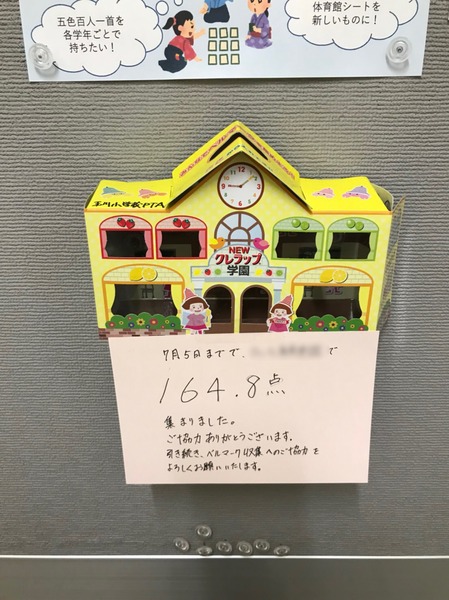 五色百人一首を
各学年ごとで
持ちたい！
体育館シートを
新しいものに！
玉川小学校PTA
NEW
クレラップ
学園
7月5日までで、で
164.8点
集まりました。
ご協力ありがとうございます。
引き続き、ベルマーク収集へのご協力を
よろしくお願いいたします。